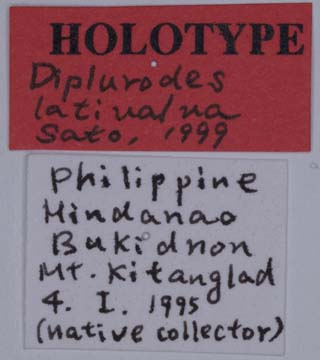 HOLOTYPE
Diplurodes
lativalva
Sato, 1999
Philippine
Mindanao
Bukidnon
Mt. Kitanglad
4. I. 1995
(native collector)